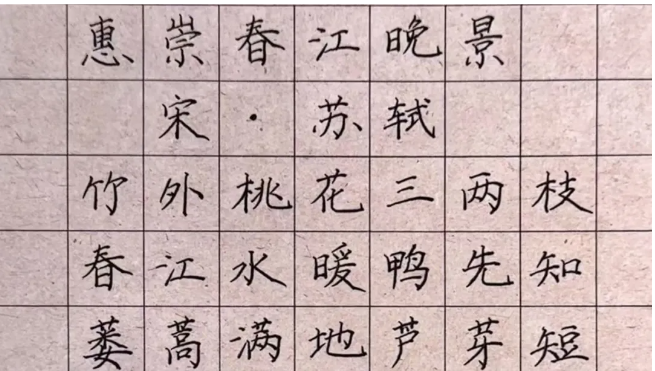 惠崇春江晚景
宋·苏轼
竹外桃花三两枝
春江水暖鸭先知
蒌蒿满地芦芽短